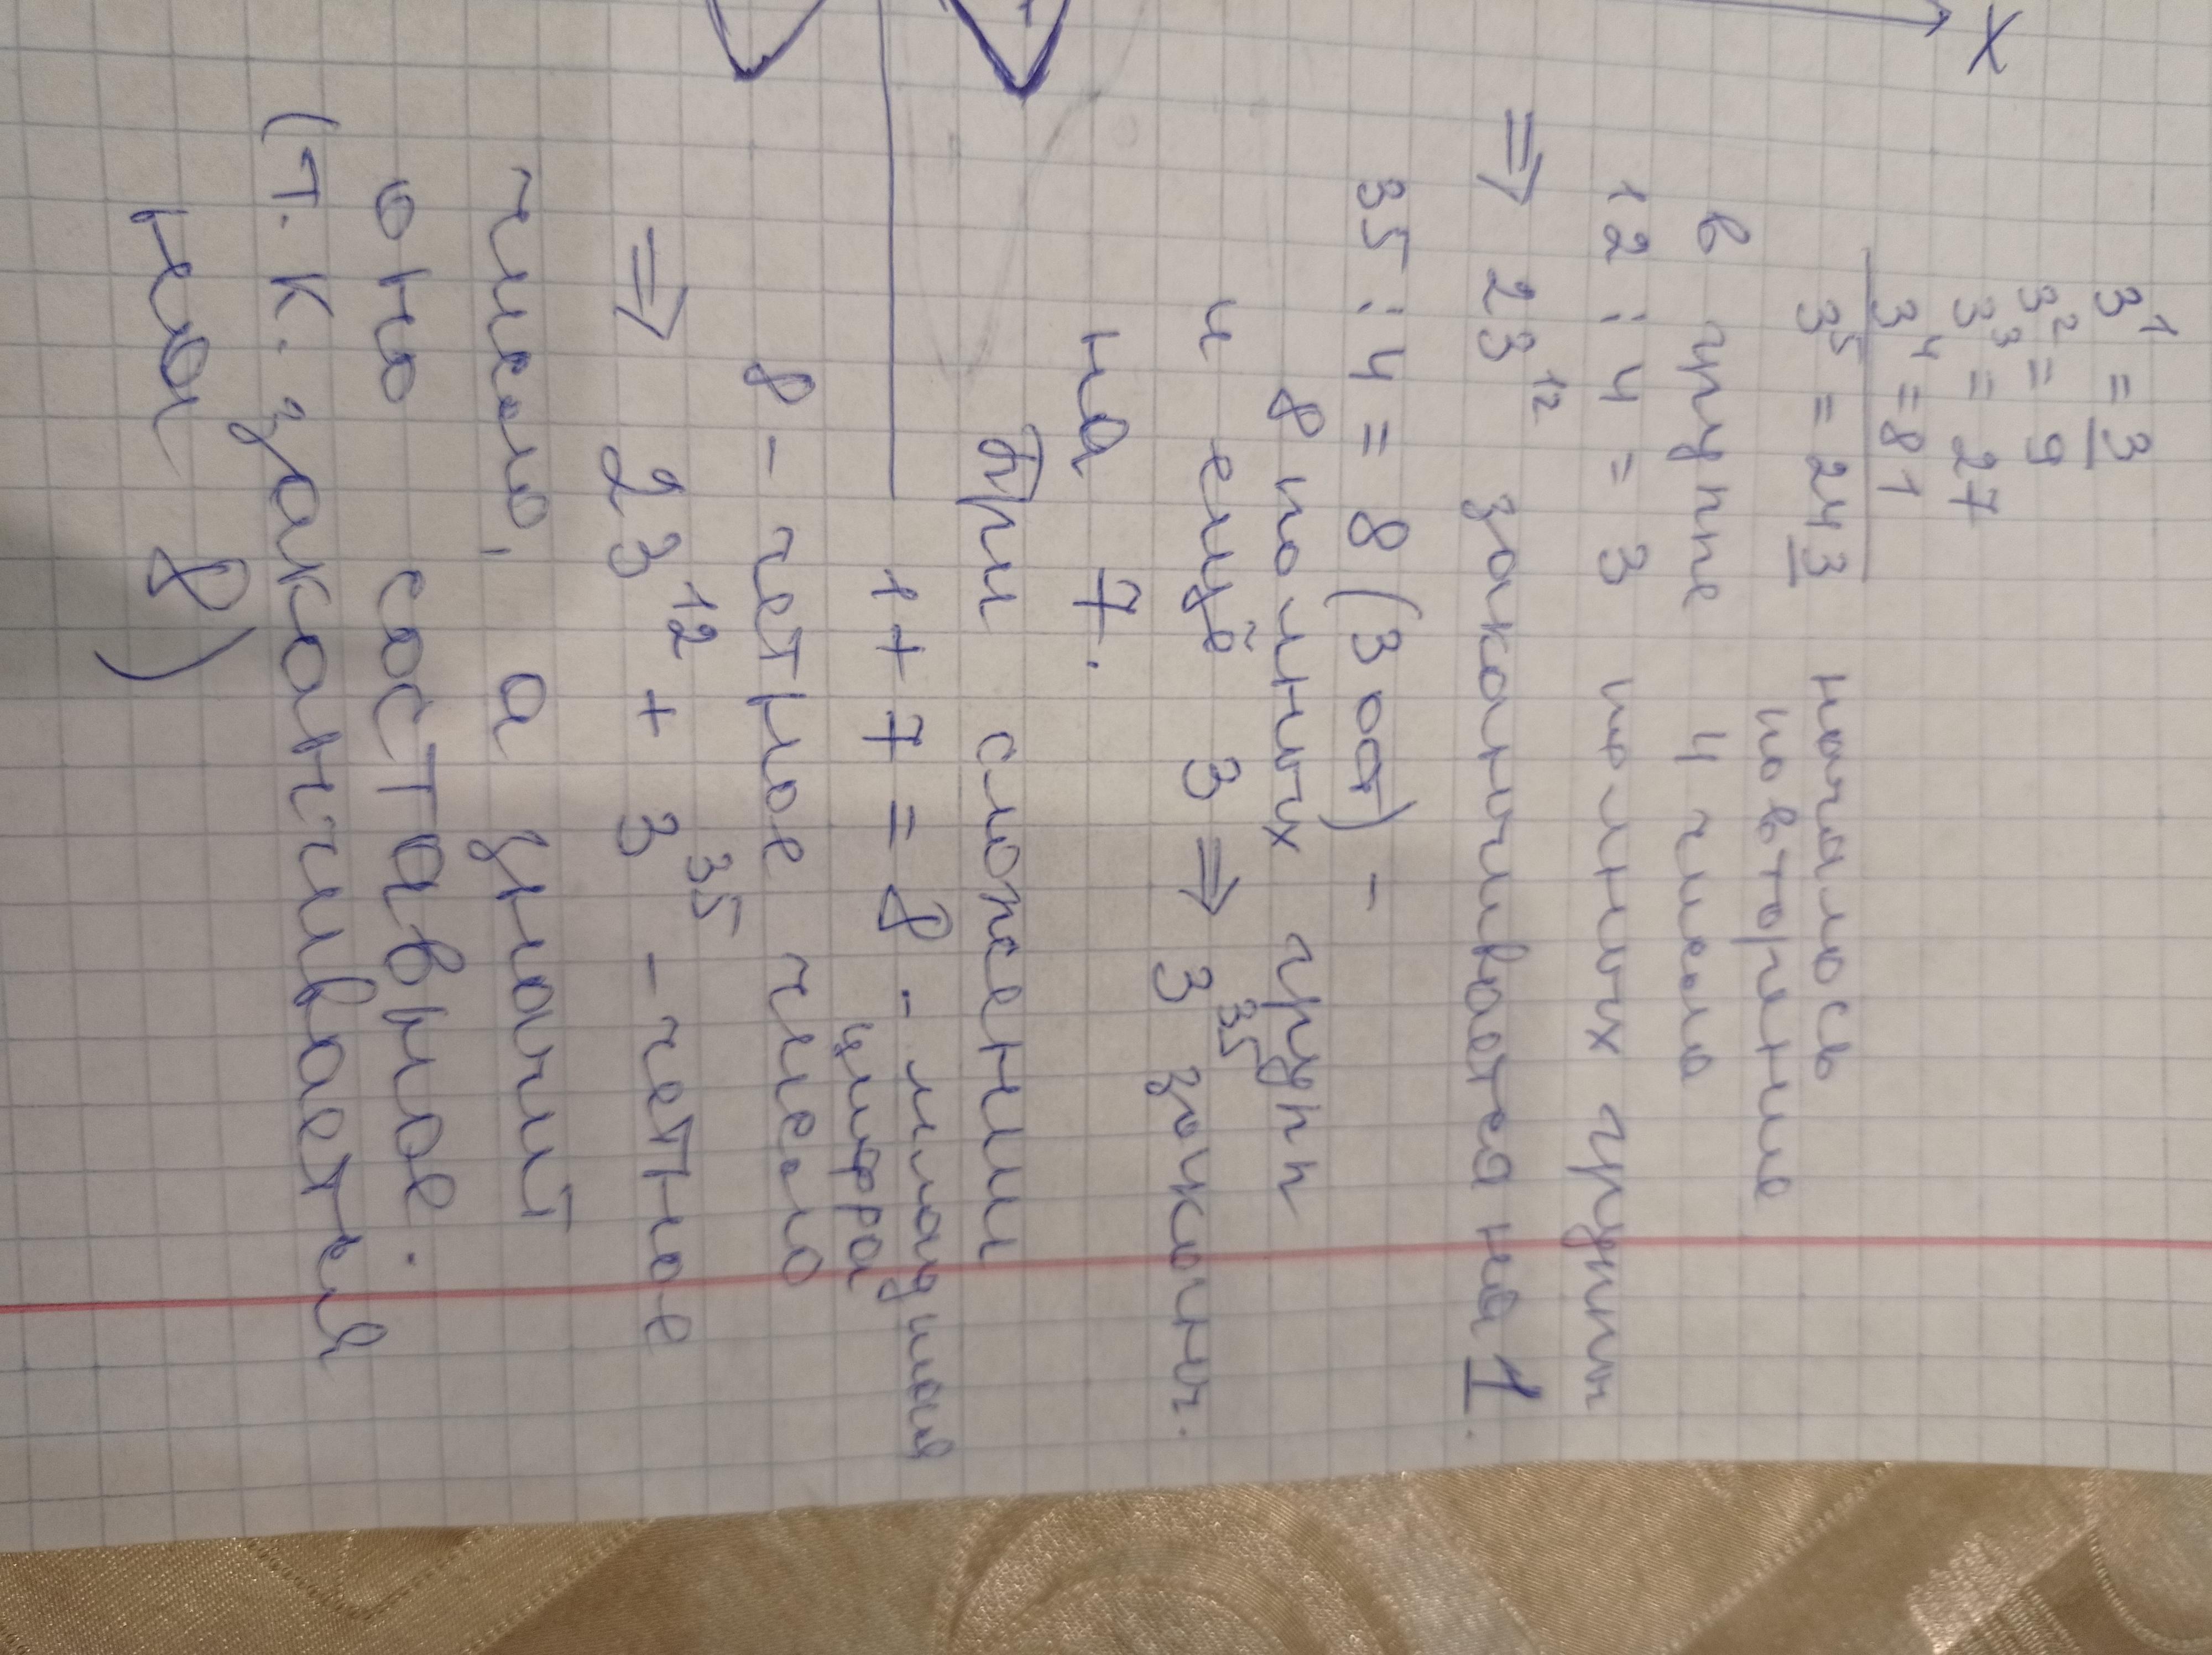 x
3¹ = 3
3² = 9
3³ = 27
3⁴ = 81
3⁵ = 243 началось
повторение
в группе 4 числа
12 : 4 = 3 полных группы
⇒ 23¹² заканчивается на 1.
35 : 4 = 8 (3 ост) -
8 полных групп
и ещё 3 ⇒ 3³⁵ заканч.
на 7.
При сложении
1 + 7 = 8 - младшая
цифра
8 - четное число
⇒ 23¹² + 3³⁵ - четное
число, а значит
оно составное.
(т. к. заканчивается
на 8)